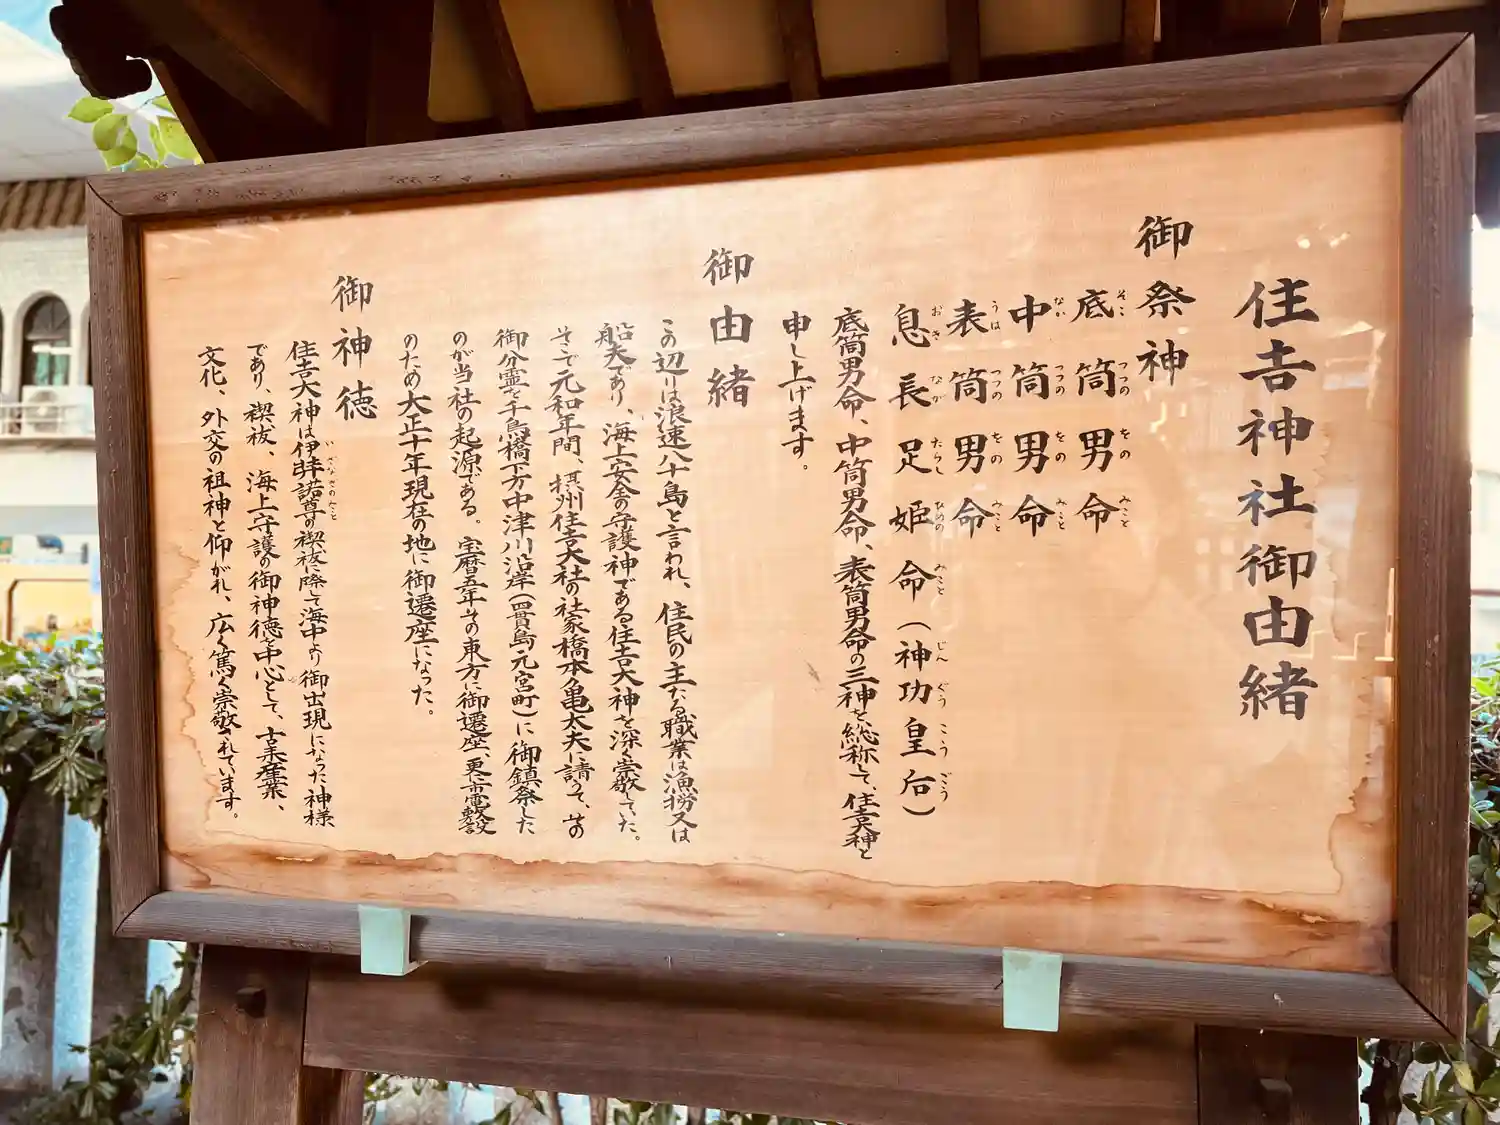 住吉神社御由緒
御祭神
底筒男命
そこ つつの をの みこと
中筒男命
なか つつの をの みこと
表筒男命
うは つつの をの みこと
息長足姫命(神功皇后)
おき なが たらし ひめの みこと じん ぐう こう ごう
底筒男命、中筒男命、表筒男命の三神を総称して、住吉大神と
申し上げます。
御由緒
この辺りは浪速八十島と言われ、住民の主なる職業は漁撈又は
船夫であり、海上安全の守護神である住吉大神を深く崇敬していた。
そこで元和年間、摂州住吉大社の社家橋本亀太夫に請うて、其の
御分霊を千鳥橋下方中津川沿岸(四貫島元宮町)に御鎮祭した
のが当社の起源である。宝暦五年その東方に御遷座、更に電車敷設
のため大正十年現在の地に御遷座になった。
御神徳
住吉大神は伊弉諾尊の禊祓に際して海中より御出現になった神様
いざなぎのみこと
であり、禊祓、海上守護の御神徳を中心として、古来産業、
文化、外交の祖神と仰がれ、広く篤く崇敬されています。